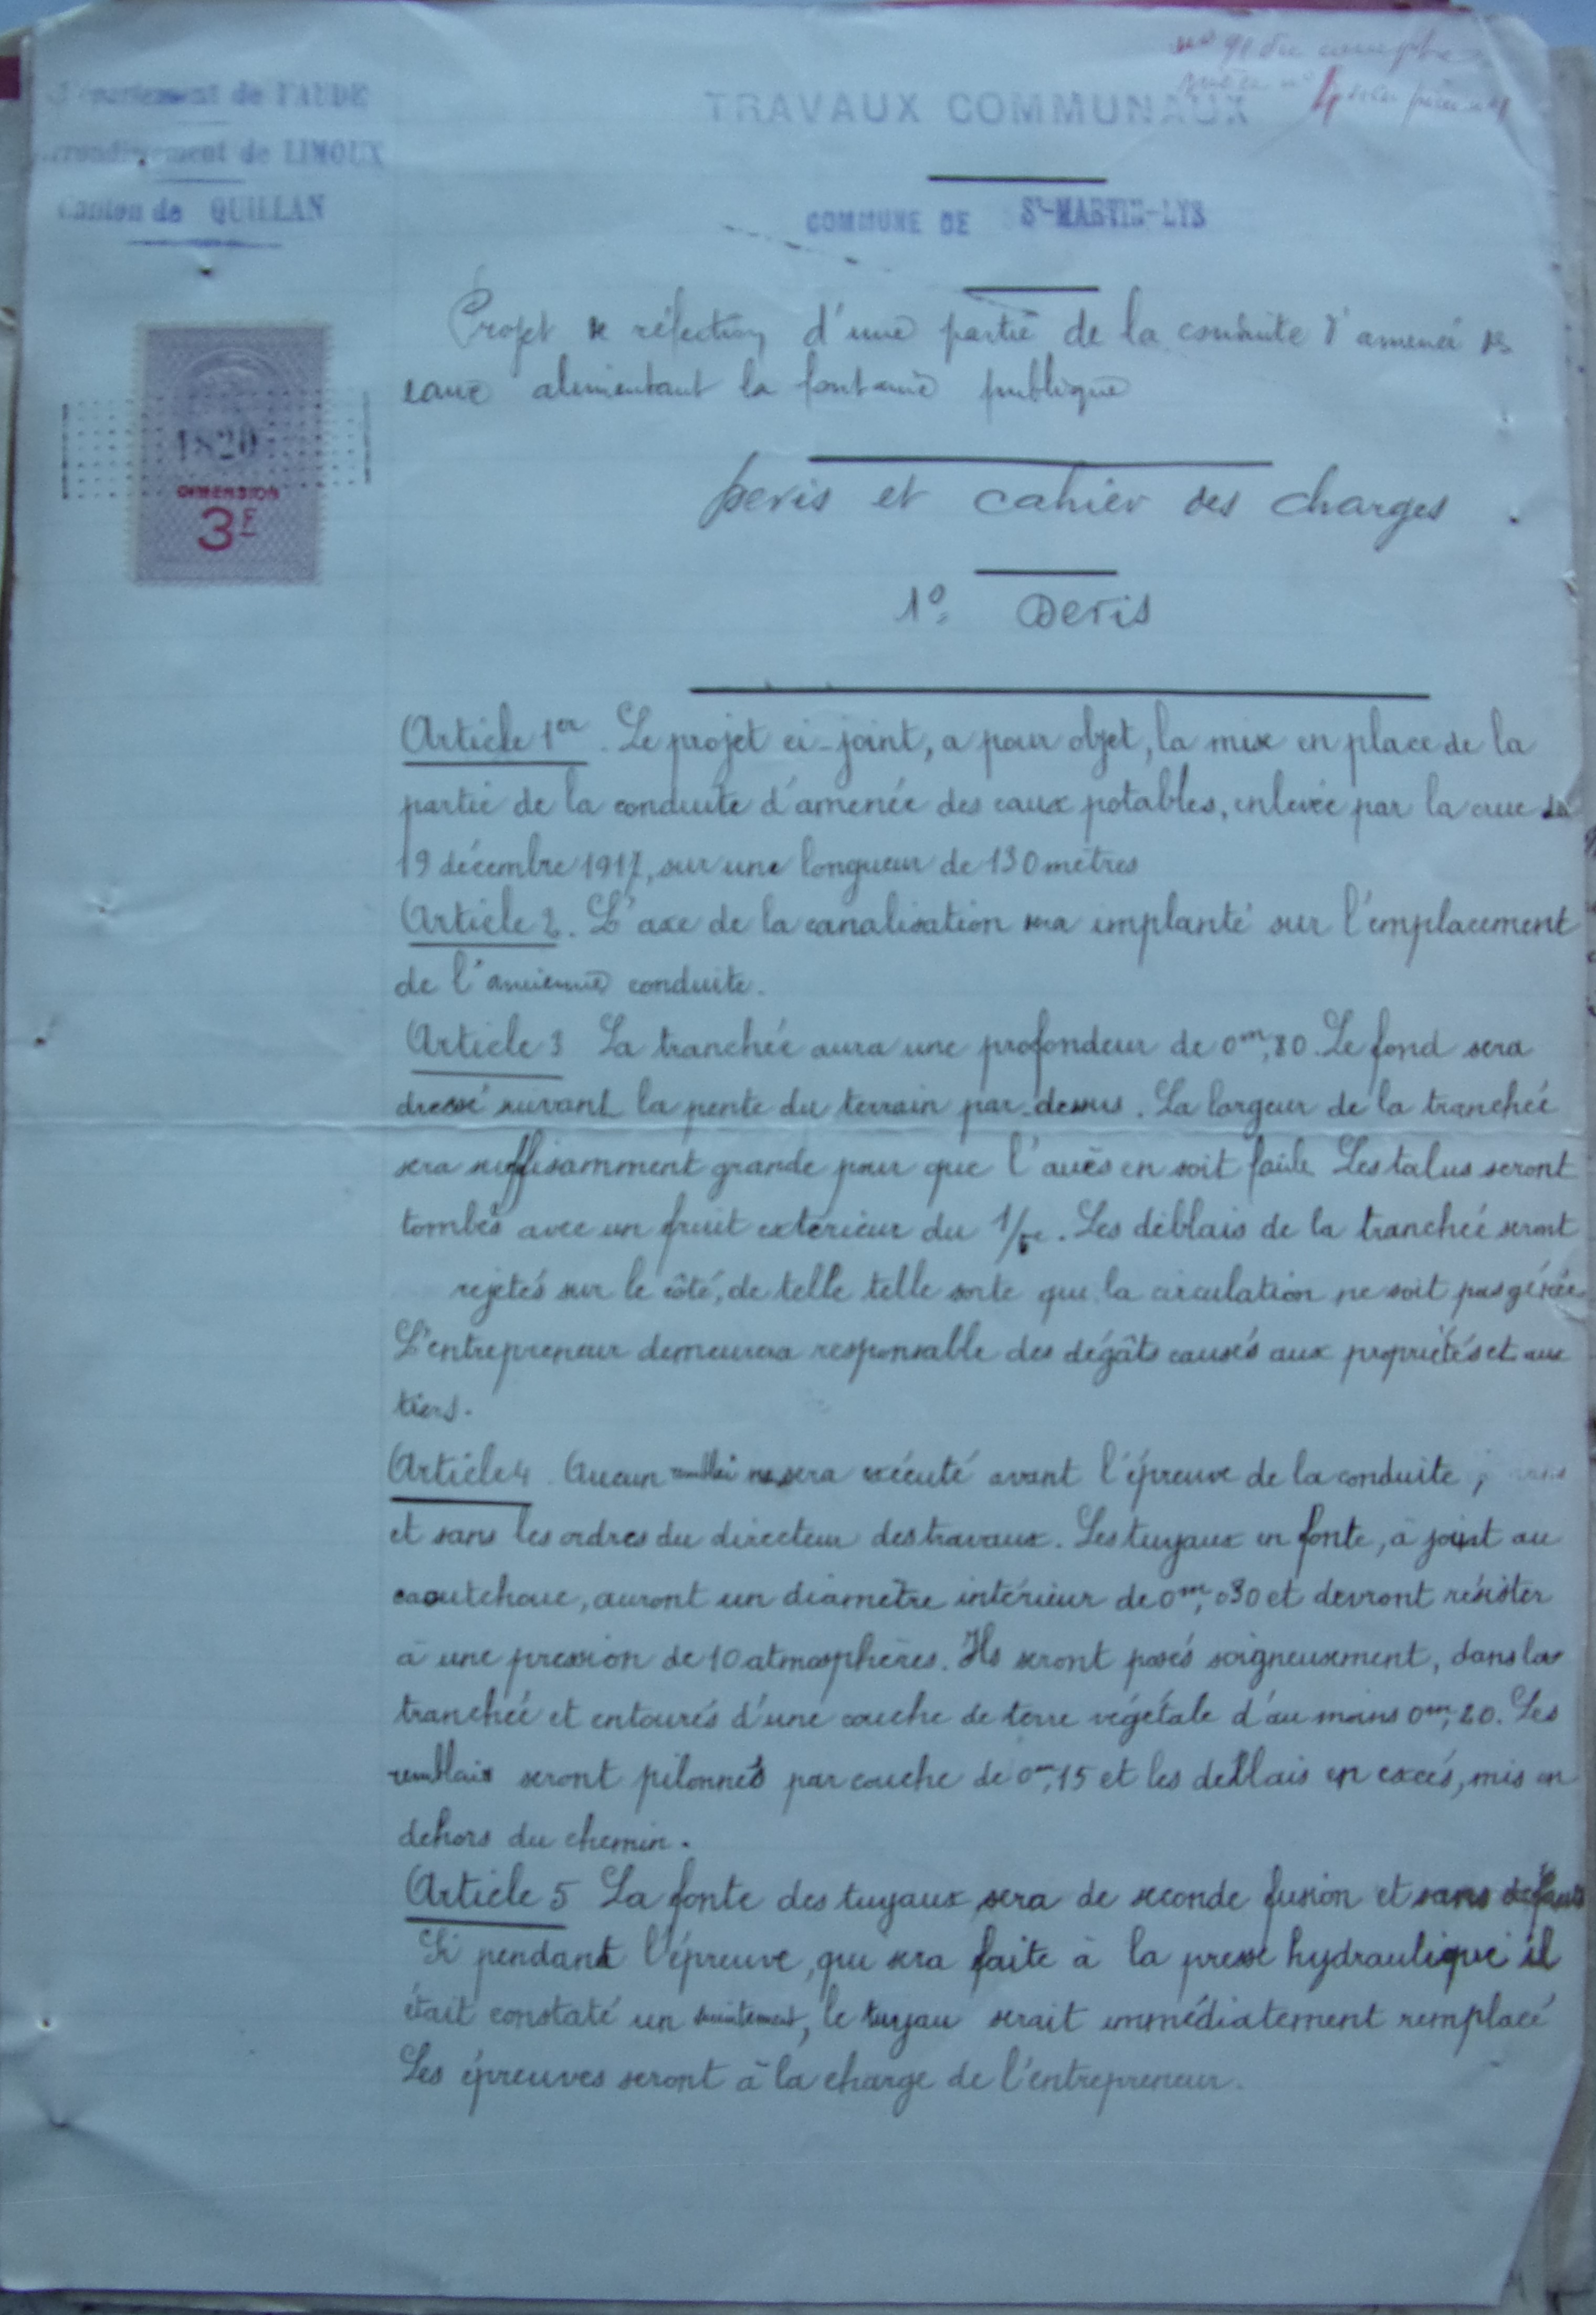 Département de l'AUDE
Arrondissement de LIMOUX
Canton de QUILLAN
nº 91 du compte
4
TRAVAUX COMMUNAUX
COMMUNE DE St-MARTIN-LYS
1820
DIMENSION
3F
Projet de réfection d'une partie de la conduite d'amenée des
eaux alimentant la fontaine publique
Devis et cahier des charges
1º Devis
Article 1er. Le projet ci-joint, a pour objet, la mise en place de la
partie de la conduite d'amenée des eaux potables, enlevée par la crue du
19 décembre 1917, sur une longueur de 130 mètres
Article 2. L'axe de la canalisation sera implanté sur l'emplacement
de l'ancienne conduite.
Article 3 La tranchée aura une profondeur de 0m,80. Le fond sera
dressé suivant la pente du terrain par-dessus. La largeur de la tranchée
sera suffisamment grande pour que l'accès en soit facile. Les talus seront
tombés avec un fruit extérieur du 1/5e. Les déblais de la tranchée seront
rejetés sur le côté, de telle telle sorte que la circulation ne soit pas gênée
L'entrepreneur demeurera responsable des dégâts causés aux propriétés et aux
tiers.
Article 4. Aucun remblai ne sera exécuté avant l'épreuve de la conduite,
et sans les ordres du directeur des travaux. Les tuyaux en fonte, à joint au
caoutchouc, auront un diamètre intérieur de 0m,030 et devront résister
à une pression de 10 atmosphères. Ils seront posés soigneusement, dans la
tranchée et entourés d'une couche de terre végétale d'au moins 0m,20. Les
remblais seront pilonnés par couche de 0m,15 et les deblais en excès, mis en
dehors du chemin.
Article 5 La fonte des tuyaux sera de seconde fusion et sans défauts
Si pendant l'épreuve, qui sera faite à la presse hydraulique il
était constaté un suintement, le tuyau serait immédiatement remplacé
Les épreuves seront à la charge de l'entrepreneur.